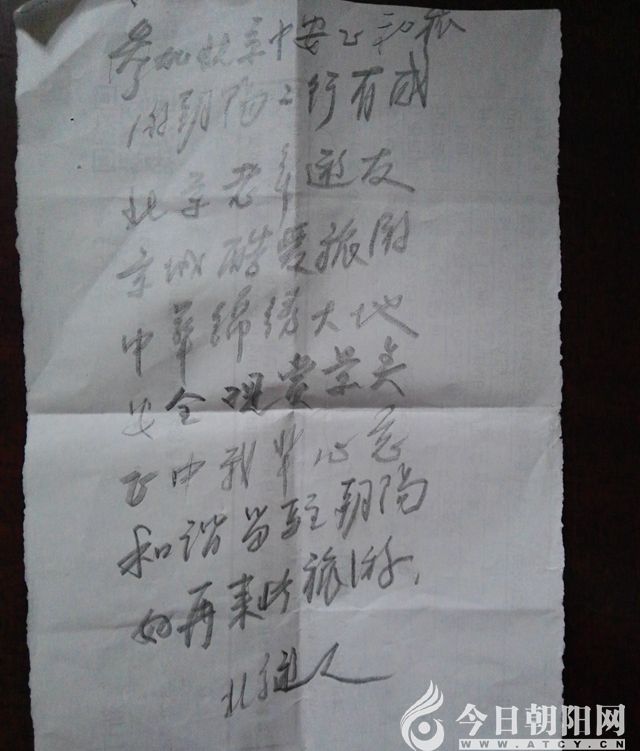 参加北京中安正和旅
游朝阳之行有感
北京老年遊友
京城酷爱旅
中华锦绣大地
安全观赏景美
正中我辈心意
和谐当驻朝阳
如再来此旅游，
北京遊人
今日朝阳网
WWW.ATCY.CN